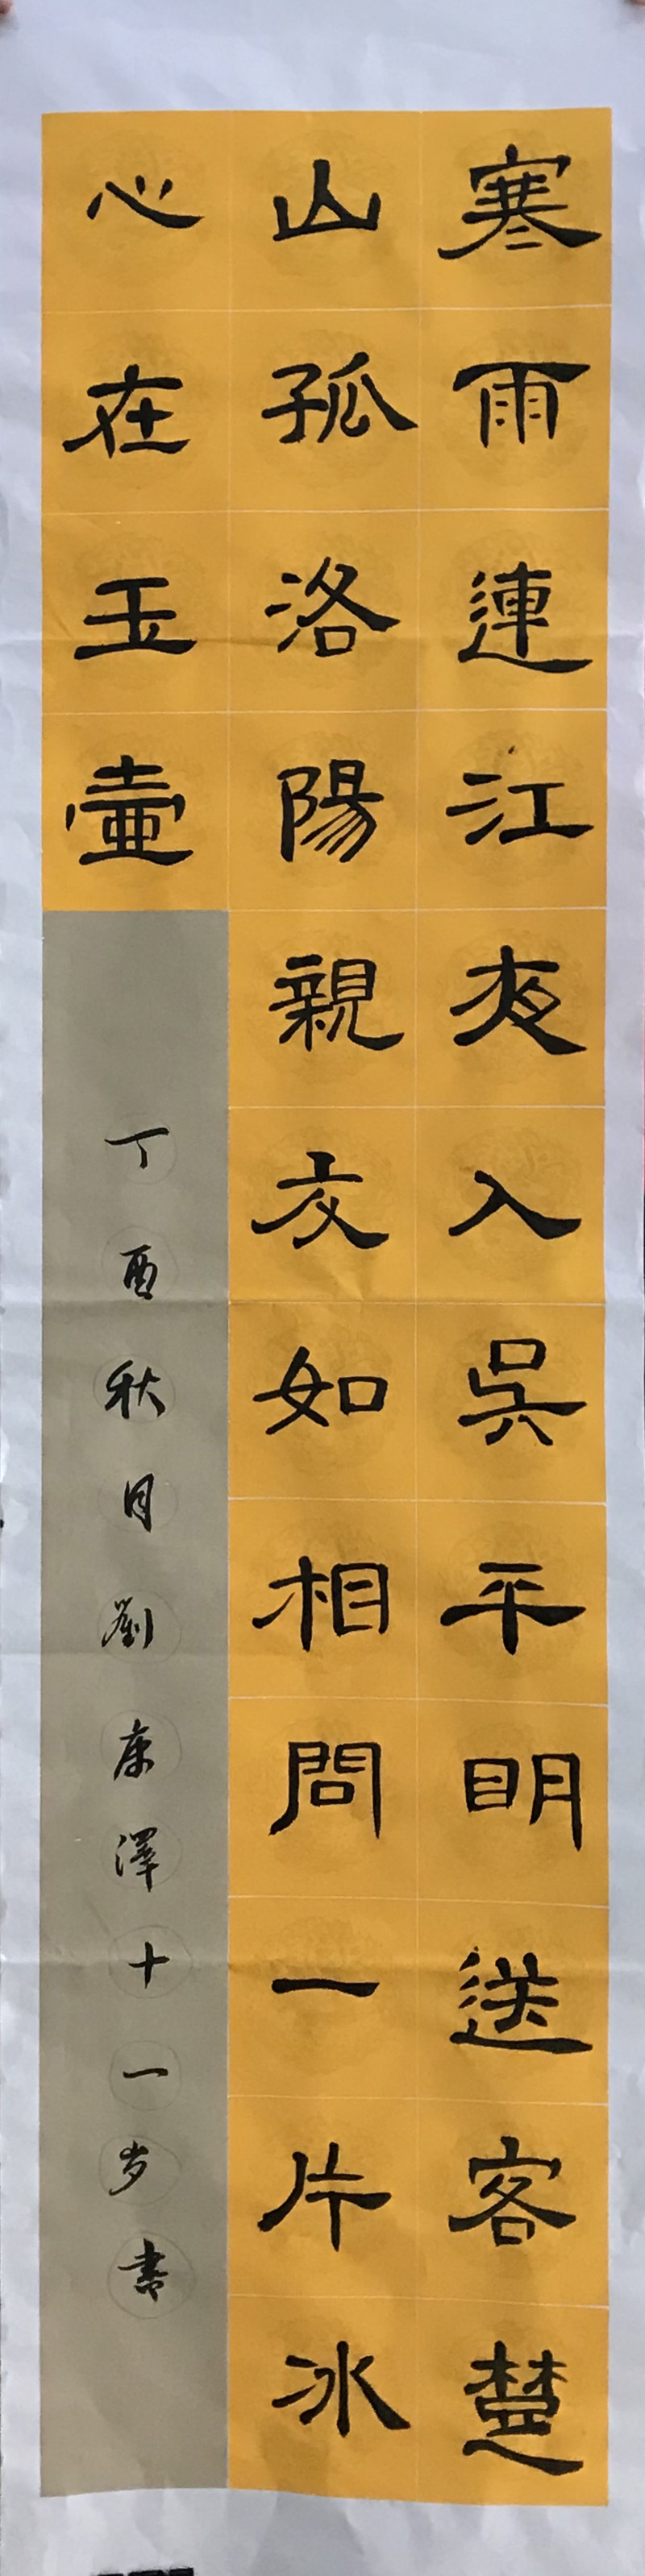 寒雨連江夜入吳平明送客楚
山孤洛陽親友如相問一片冰
心在玉壺
丁酉秋月劉康澤十一岁書